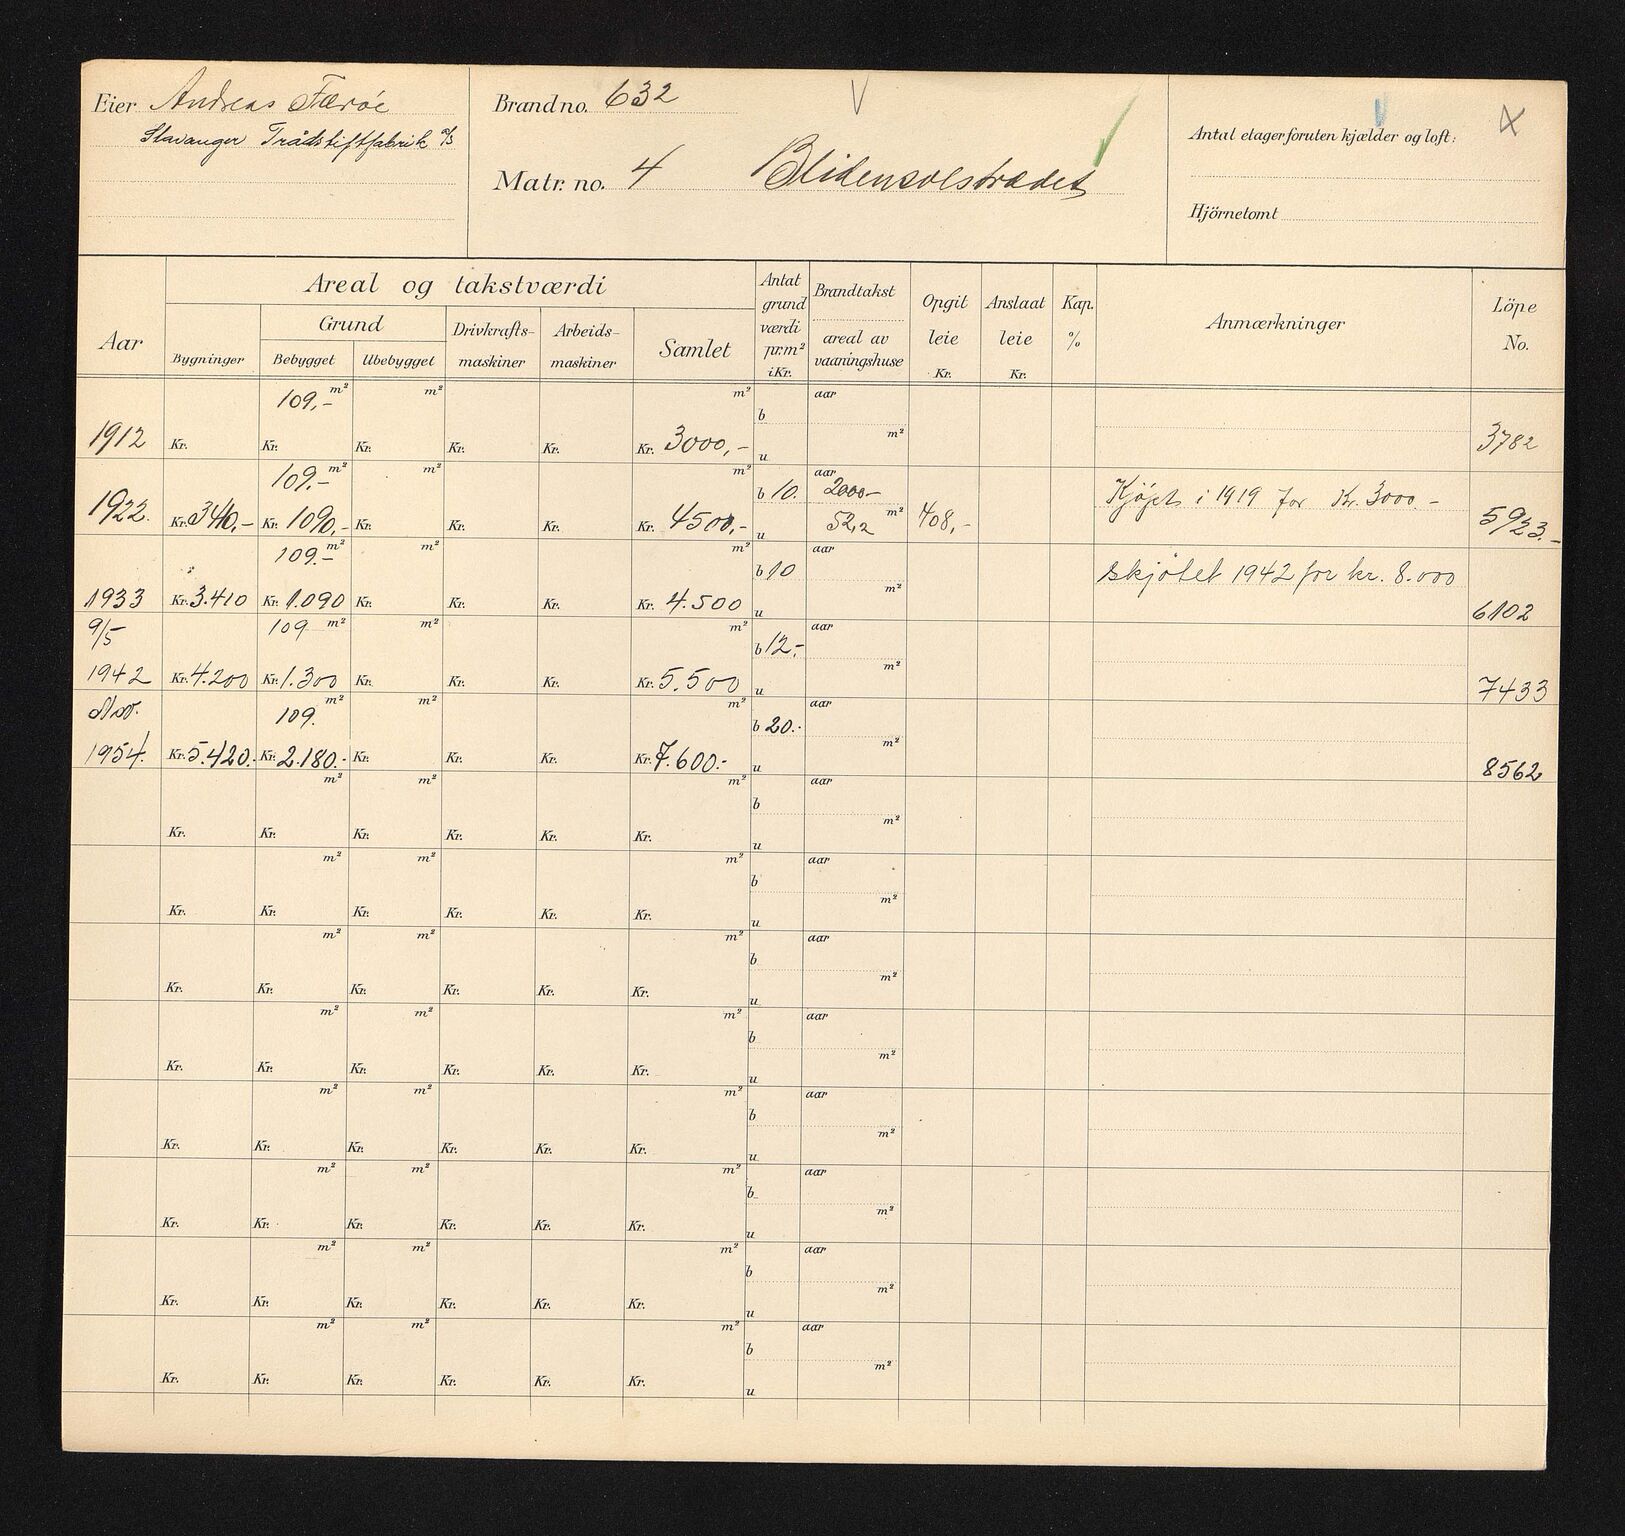 Eier Andreas Færöe
Stavanger Trådstiftfabrik a/s
Brand no. 632
Matr. no. 4 Blidensolstrædet
Antal etager foruten kjælder og loft:
Hjörnetomt
Aar
Areal og takstværdi
Bygninger
Grund
Bebygget Ubebygget
Drivkrafts-
maskiner
Arbeids-
maskiner
Samlet
Antat
grund
værdi
pr.m²
i Kr.
Brandtakst
areal av
vaaningshuse
Opgit
leie
Kr.
Anslaat
leie
Kr.
Kap.
%
Anmærkninger
Löpe
No.
109,- m² m² m² aar
b
1912 Kr. Kr. Kr. Kr. Kr. Kr. 3000,- u m² 3782
109.- m² m² m² aar
b 10. 2000- Kjøpt i 1919 for Kr. 3000.-
1922. Kr. 3410,- Kr. 1090,- Kr. Kr. Kr. Kr. 4500,- u 52,2 m² 408,- 5923.-
109.- m² m² m² aar
b 10 skjøtet 1942 for kr. 8.000
1933 Kr. 3.410 Kr. 1.090 Kr. Kr. Kr. Kr. 4.500 u m² 6102
9/5 109 m² m² m² aar
b 12,-
1942 Kr. 4.200 Kr. 1.300 Kr. Kr. Kr. Kr. 5.500 u m² 7433
Nov. 109. m² m² m² aar
b 20.-
1954. Kr. 5.420.- Kr. 2.180.- Kr. Kr. Kr. Kr. 7.600.- u m² 8562
m² m² m² aar
b
Kr. Kr. Kr. Kr. Kr. Kr. u m²
m² m² m² aar
b
Kr. Kr. Kr. Kr. Kr. Kr. u m²
m² m² m² aar
b
Kr. Kr. Kr. Kr. Kr. Kr. u m²
m² m² m² aar
b
Kr. Kr. Kr. Kr. Kr. Kr. u m²
m² m² m² aar
b
Kr. Kr. Kr. Kr. Kr. Kr. u m²
m² m² m² aar
b
Kr. Kr. Kr. Kr. Kr. Kr. u m²
m² m² m² aar
b
Kr. Kr. Kr. Kr. Kr. Kr. u m²
m² m² m² aar
b
Kr. Kr. Kr. Kr. Kr. Kr. u m²